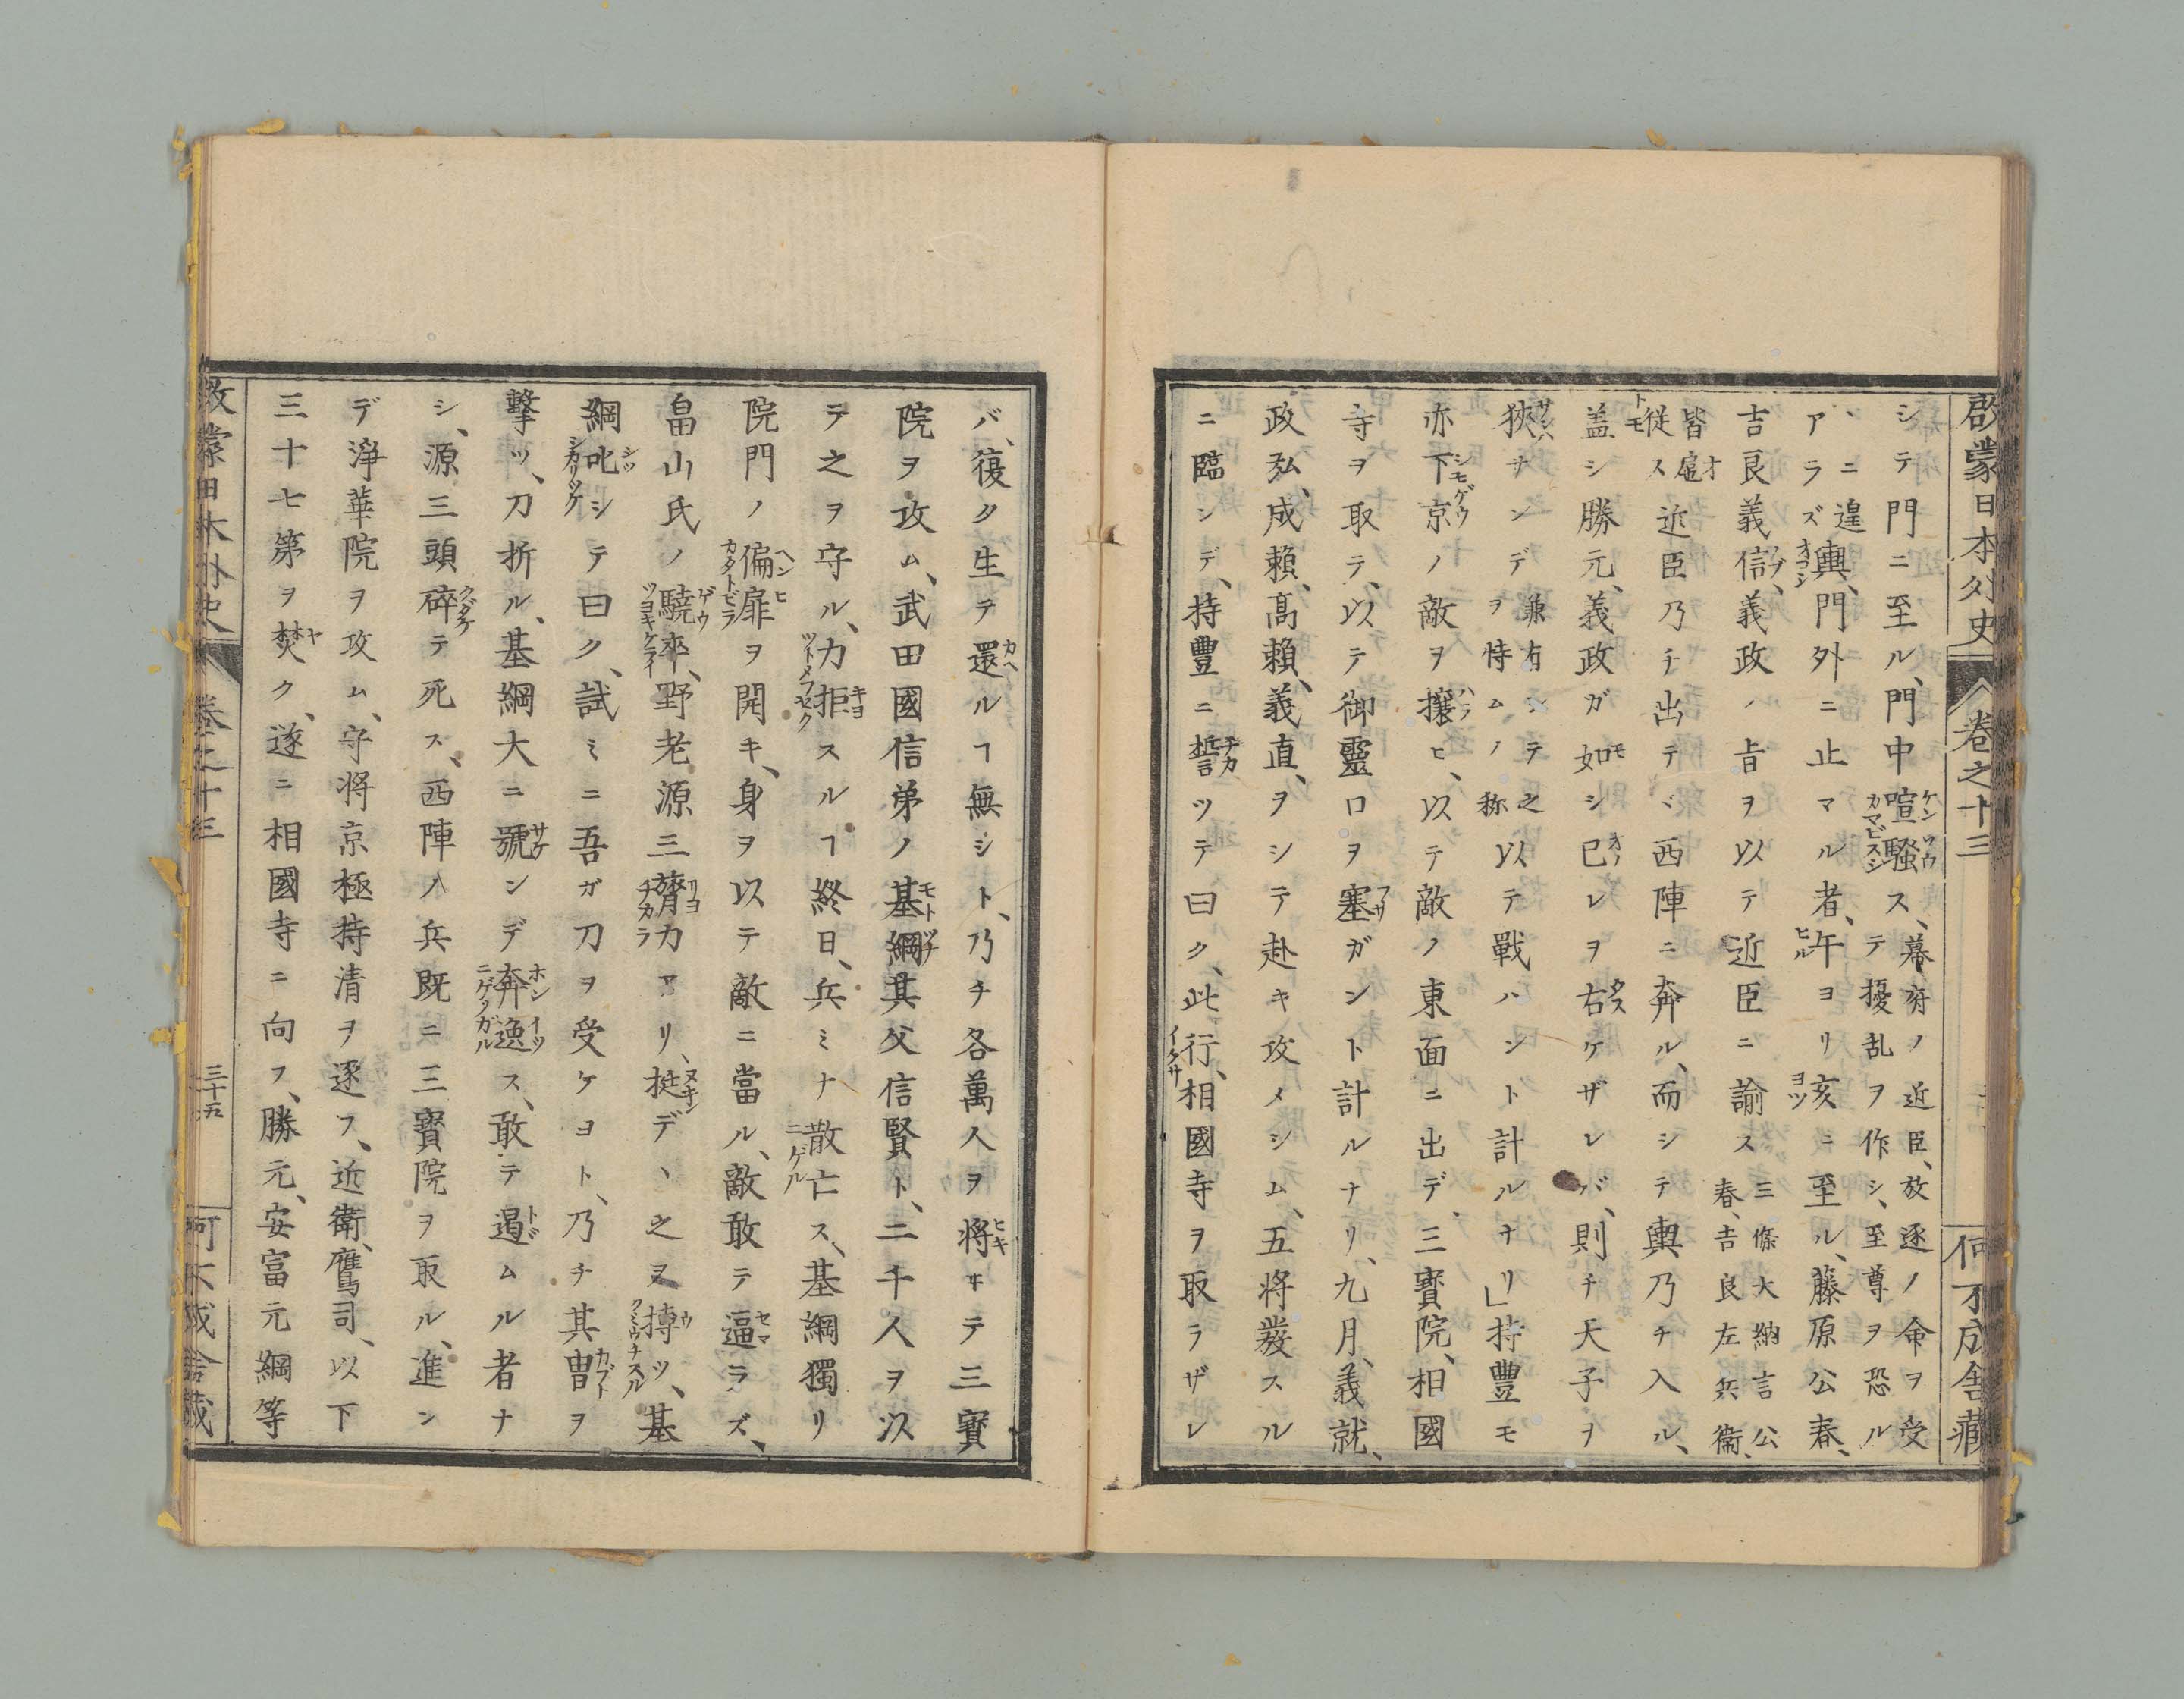 啓蒙日本外史 巻之十三 何不成舎藏
シテ門ニ至ル、門中喧騒ス、幕府ノ近臣、放逐ノ命ヲ受
テ擾乱ヲ作シ、至尊ヲ恐ル
、ニ遑
アラズ輿、門外ニ止マル者、午ヨリ亥ニ至ル、藤原公春、
吉良義信、義政ノ旨ヲ以テ近臣ニ諭ス三條大納言公
春、吉良左兵衞、
皆扈
従ス近臣乃チ出テヾ西陣ニ奔ル、而シテ輿乃チ入ル、
盖シ勝元、義政ガ如シ已レヲ右ケザレバ、則チ天子ヲ
狹サンデ兼有シテ之
ヲ恃ムノ称以テ戰ハント計ルナリ」持豐モ
亦下京ノ敵ヲ攘ヒ、以テ敵ノ東面ニ出デ、三寳院、相國
寺ヲ取テ、以テ御靈口ヲ塞ガント計ルナリ、九月、義就、
政弘、成頼、髙頼、義直、ヲシテ赴キ攻メシム、五将發スル
ニ臨ンデ、持豐ニ誓ツテ曰ク、此行、相國寺ヲ取ラザレ
バ、復タ生テ還ルヿ無シト、乃チ各萬人ヲ将ヰテ三寳
院ヲ攻ム、武田國信弟ノ基綱其父信賢ト、二千人ヲ以
テ之ヲ守ル、力拒スルヿ終日、兵ミナ散亡ス、基綱獨リ
院門ノ偏扉ヲ開キ、身ヲ以テ敵ニ當ル、敵敢テ逼ラズ、
畠山氏ノ驍卒、野老源三膂力アリ、挺デヽ之ヲ搏ツ、基
綱叱シテ曰ク、試ミニ吾ガ刀ヲ受ケヨト、乃チ其冑ヲ
擊ツ、刀折ル、基綱大ニ號ンデ奔逸ス、敢テ遏ムル者ナ
シ、源三頭碎テ死ス、西陣ノ兵既ニ三寳院ヲ取ル、進ン
デ淨華院ヲ攻ム、守将京極持清ヲ逐フ、近衛、鷹司、以下
三十七第ヲ焚ク、遂ニ相國寺ニ向フ、勝元、安富元綱等
啓蒙日本外史 巻之十三 三十五 何不成舎藏